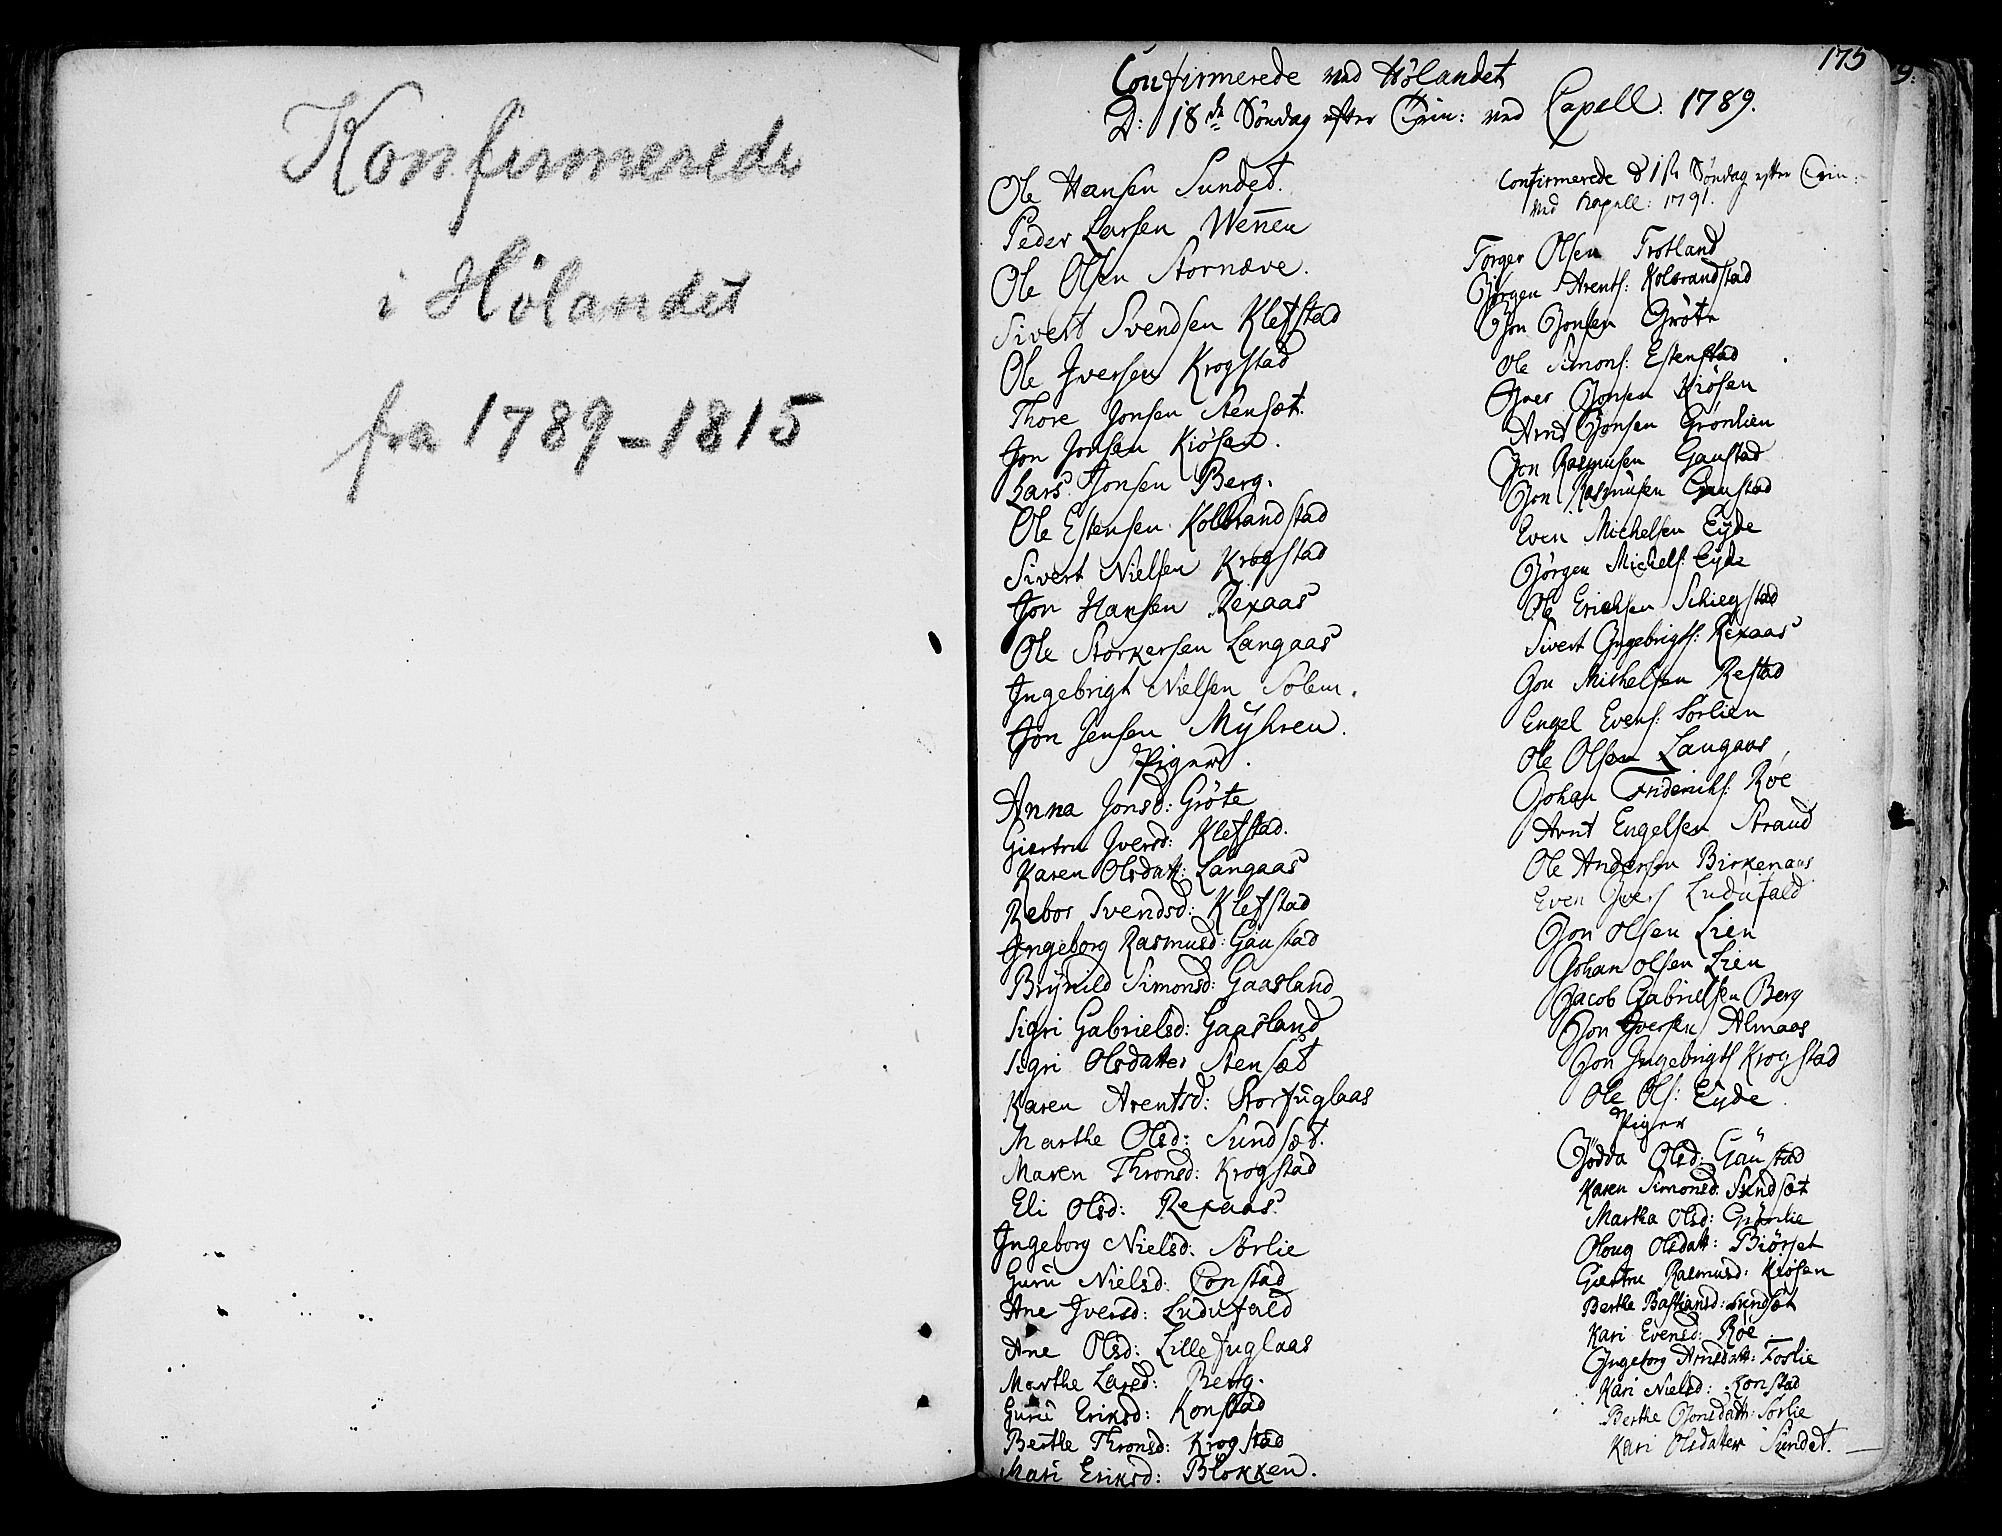 Konfirmerede
i Hølandet
fra 1789-1815
175
Confirmerede ved Hølandet
D: 18de Søndag efter Trin: ved Capell: 1789.
Ole Hansen Sundet.
Peder Larsen Wennen
Ole Olsen Stornæve.
Sivert Svendsen Klefstad
Ole Iversen Krogstad
Thore Jonsen Stensæt.
Jon Jonsen Kiösen.
Lars Jonsen Berg.
Ole Estensen Kolbrandstad
Sivert Nielsen Krogstad
Jon Hansen Rexaas
Ole Storkersen Langaas
Ingebrigt Nielsen Solem.
Jon Jensen Myhren.
Piger.
Anna Jonsd: Gröte
Giertru Iversd: Klefstad.
Karen Olsdatt: Langaas
Rebor Svendsd: Klefstad
Ingeborg Rasmusd: Gaustad
Brynild Simonsd: Gaasland
Sigri Gabrielsd: Gaasland
Sigri Olsdatter Stensæt
Karen Arentsd: Storfuglaas
Marthe Olsd: Sundsæt.
Maren Thronsd: Krogstad
Eli Olsd: Rexaas
Ingeborg Nielsd: Sörlie
Guru Nielsd: Constad
Ane Iversd: Ludufald
Ane Olsd: Lillefuglaas
Marthe Larsd: Berg.
Guru Eriksd: Konstad
Berthe Thronsd: Krogstad
Mari Eriksd: Blokken.
Confirmerede d 1ste Søndag efter Trin:
ved Kapell: 1791.
Torger Olsen Trotland
Jörgen Arents: Kolbrandstad
Jon Jonsen Gröte
Ole Simons: Estenstad
Iver Jonsen Kiösen
Arnt Jonsen Grönlien
Jon Rasmusen Gaustad
Jon Rasmusen Gaustad
Even Michelsen Eyde
Jörgen Michels: Eyde
Ole Erichsen Schiegstad
Sivert Ingebrigts: Rexaas
Jon Michelsen Restad
Engel Evens: Sörlien
Ole Olsen Langaas
Johan Friderichs: Röe
Arnt Engelsen Strand
Ole Andersen Birkenaas
Even Ivers Ludufald
Jon Olsen Lien
Johan Olsen Lien
Jacob Gabrielsen Berg
Jon Iversen Almaas
Jon Ingebrigts Krogstad
Ole Ols: Eyde
Piger
Jödda Olsd: Gaustad
Karen Simonsd: Sundsæt
Martha Olsd: Grönlie
Oloug Olsdatt: Biörset
Giertru Rasmusd: Kiösen
Berthe Bastiansd: Sundsæt
Kari Evensd: Röe
Ingeborg Arnsdatt: Foslie
Kari Nielsd: Konstad
Berthe Jonsdatt: Sörlie
Kari Olsdatter Sundet.